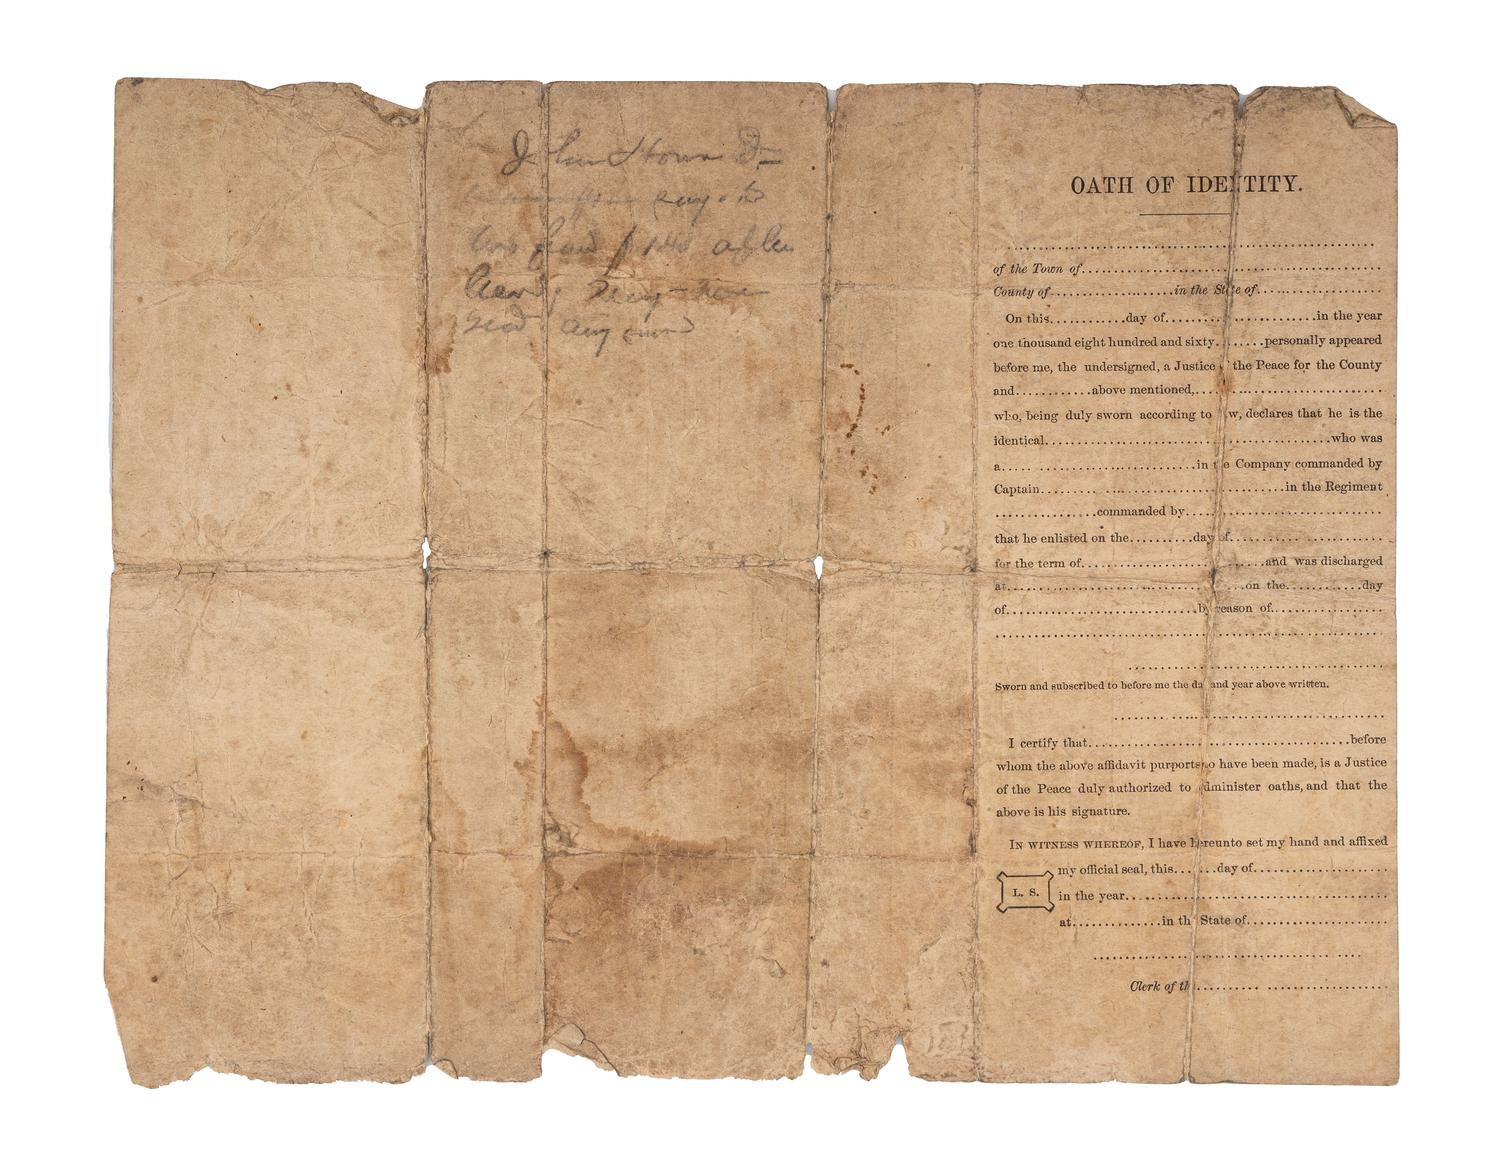 John
OATH OF IDENTITY.
of the Town of
County of in the State of
On this day of in the year
one thousand eight hundred and sixty personally appeared
before me, the undersigned, a Justice of the Peace for the County
and above mentioned,
who, being duly sworn according to law, declares that he is the
identical who was
a in the Company commanded by
Captain in the Regiment
commanded by
that he enlisted on the day of
for the term of and was discharged
at on the day
of by reason of
Sworn and subscribed to before me the day and year above written.
I certify that before
whom the above affidavit purports to have been made, is a Justice
of the Peace duly authorized to administer oaths, and that the
above is his signature.
IN WITNESS WHEREOF, I have hereunto set my hand and affixed
my official seal, this day of
L. S.
in the year
at in the State of
Clerk of the